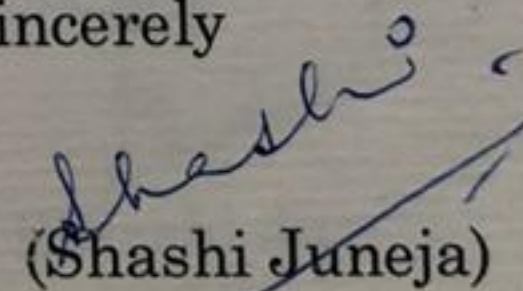 incerely
Shashi
(Shashi Juneja)